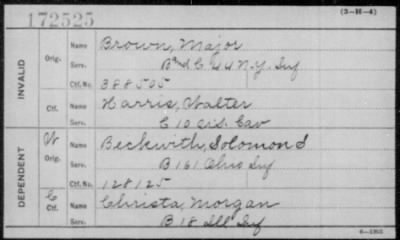 172525
(3-H-4)
INVALID
Orig. Name Brown, Major
Serv. B and C 44 N.Y. Inf
Ctf. No. 388505
Ctf. Name Harris, Walter
Serv. C 10 Cav
DEPENDENT
W Orig. Name Beckwith, Solomon S
Serv. B 161 Ohio Inf
Ctf. No. 128125
C Ctf. Name Christa, Morgan
Serv. B 18 Ill Inf